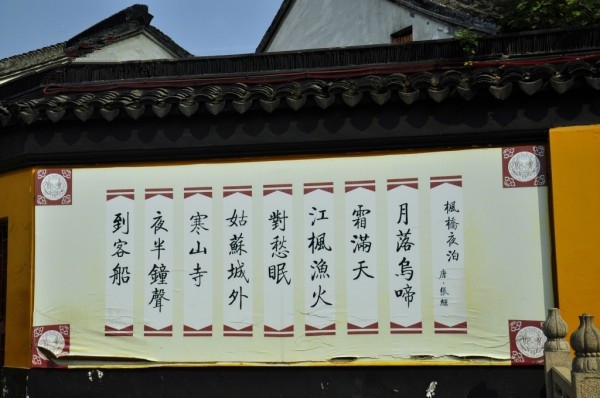 楓橋夜泊 唐·張繼
月落烏啼
霜滿天
江楓漁火
對愁眠
姑蘇城外
寒山寺
夜半鐘聲
到客船